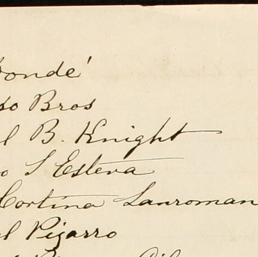 Condé
so Bros
l B. Knight
o S Esteva
Cortina Lauroman
l Pizarro